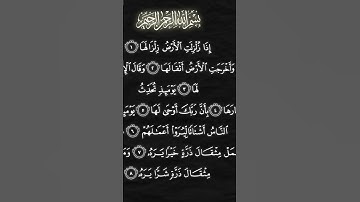 بِسْمِ اللَّهِ الرَّحْمَٰنِ الرَّحِيمِ
إِذَا زُلْزِلَتِ الْأَرْضُ زِلْزَالَهَا ١
وَأَخْرَجَتِ الْأَرْضُ أَثْقَالَهَا ٢ وَقَالَ الْإِ
لَهَا ٣ يَوْمَئِذٍ تُحَدِّثُ
بَارَهَا ٤ بِأَنَّ رَبَّكَ أَوْحَىٰ لَهَا ٥ يَوْمَئِ
النَّاسُ أَشْتَاتًا لِّيُرَوْا أَعْمَٰلَهُمْ ٦
مَلْ مِثْقَالَ ذَرَّةٍ خَيْرًا يَرَهُۥ ٧ وَمَ
مِثْقَالَ ذَرَّةٍ شَرًّا يَرَهُۥ ٨